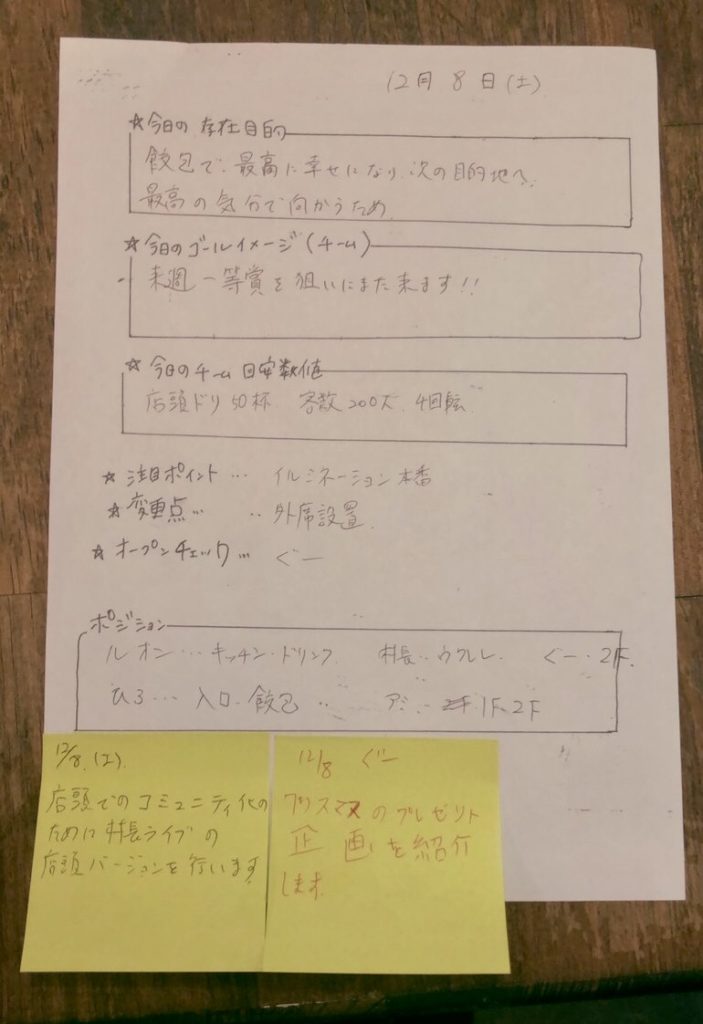 12月 8 日 (土)
☆今日の 存在目的
餃包で 最高に幸せになり 次の目的地へ
最高の気分で向かうため
☆今日のゴールイメージ(チーム)
来週 一等賞を狙いにまた来ます!!
☆今日のチーム目安数値
店頭ドリ 50杯 客数 200人 4回転
☆注目ポイント… イルミネーション本番
☆変更点… ‥外席設置
☆オープンチェック… ぐー
ポジション
ルオン…キッチン・ドリンク 村長‥ウクレレ ぐー‥2F
ひろ…入口・餃包 ‥ アミ‥1F 2F
12/8.(土)
店頭でのコミュニティ化の
ために村長ライブの
店頭バージョンを行います
12/8 ぐー
クリスマスのプレゼント
企画を紹介
します